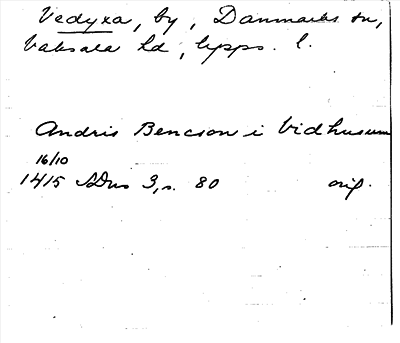 Vedyxa, by, Danmarks sn,
Vaksala hd, Upps. l.
Andris Bencson i Vidhusum
16/10
1415 SDns 3, s. 80 orig.